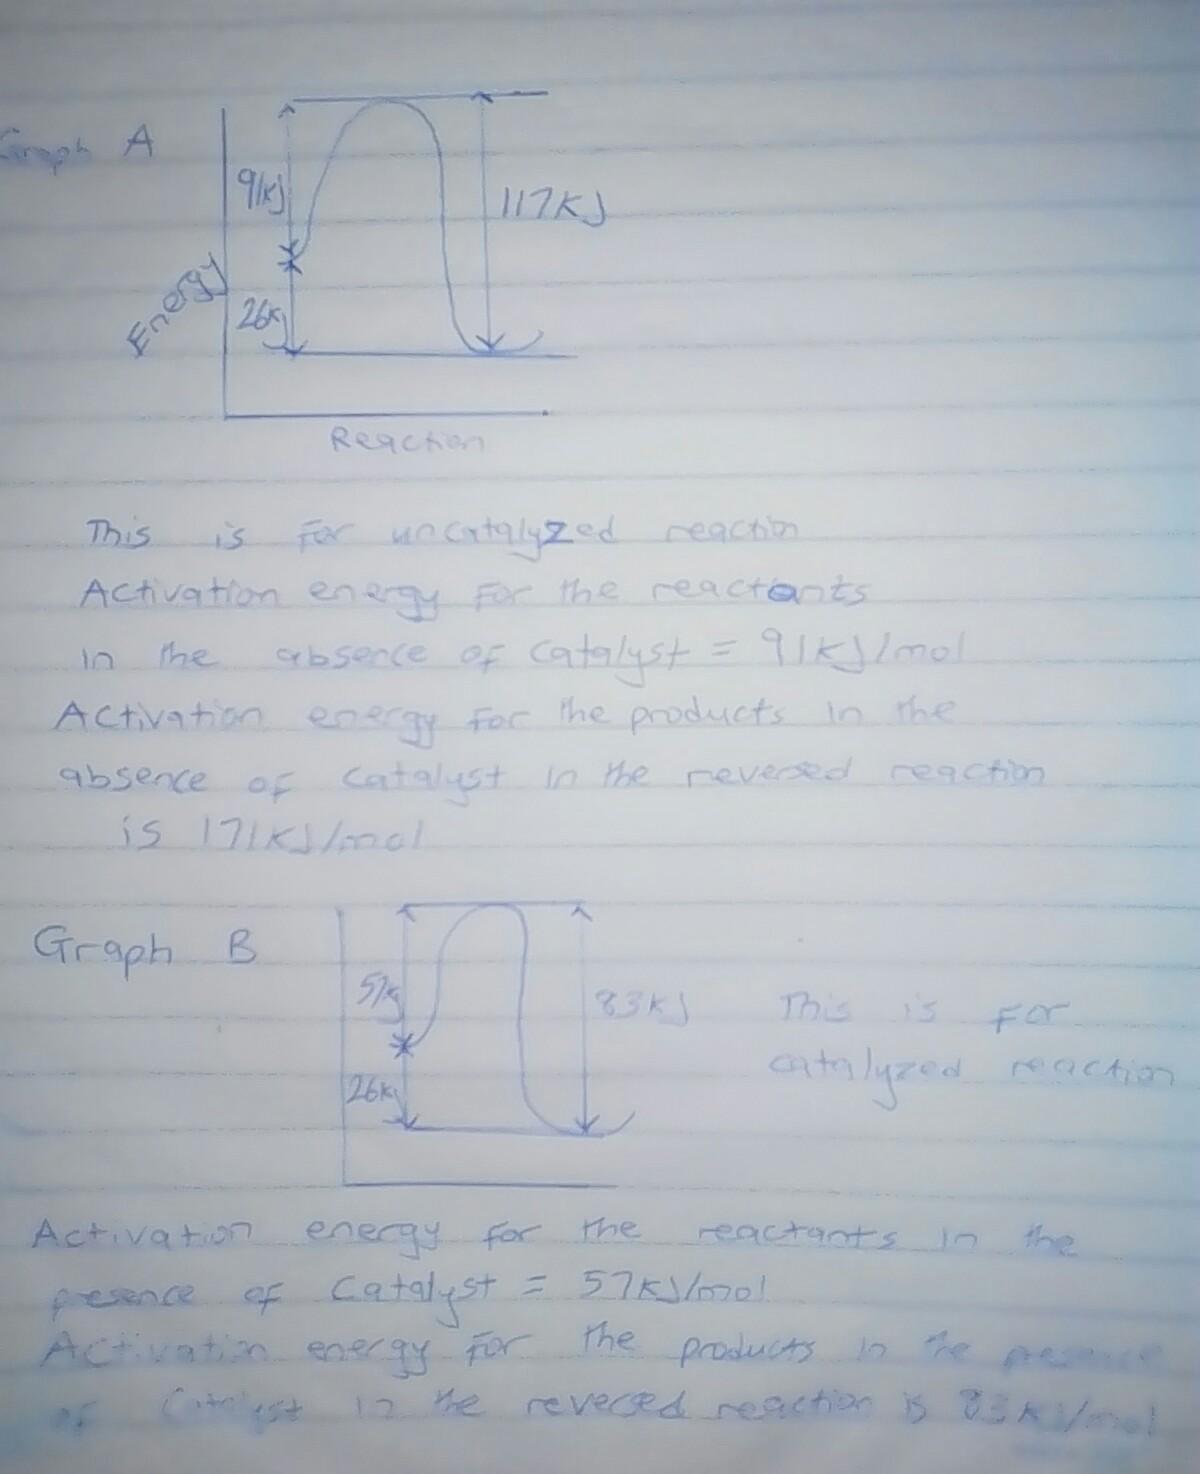 Graph A
91KJ
117KJ
26KJ
Energy
Reaction
This is for uncatalyzed reaction
Activation energy for the reactants
in the absence of catalyst = 91KJ/mol
Activation energy for the products in the
absence of catalyst in the reversed reaction
is 171KJ/mol
Graph B
57KJ
83KJ
This is for
catalyzed reaction
26KJ
Activation energy for the reactants in the
presence of catalyst = 57KJ/mol
Activation energy for the products in the presence
of Catalyst in the reversed reaction is 83KJ/mol